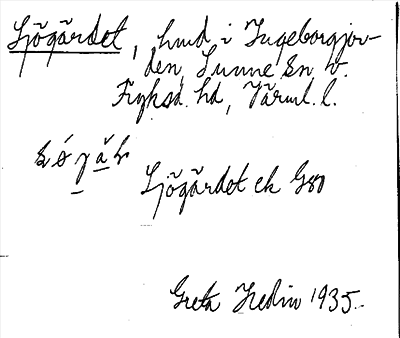 Sjögärdet, hmd i Ingeborgjor-
den, Sunne sn v.
Fryksd. hd, Värml. l.
Sjögärdet ek G80
Greta Hedin 1935.